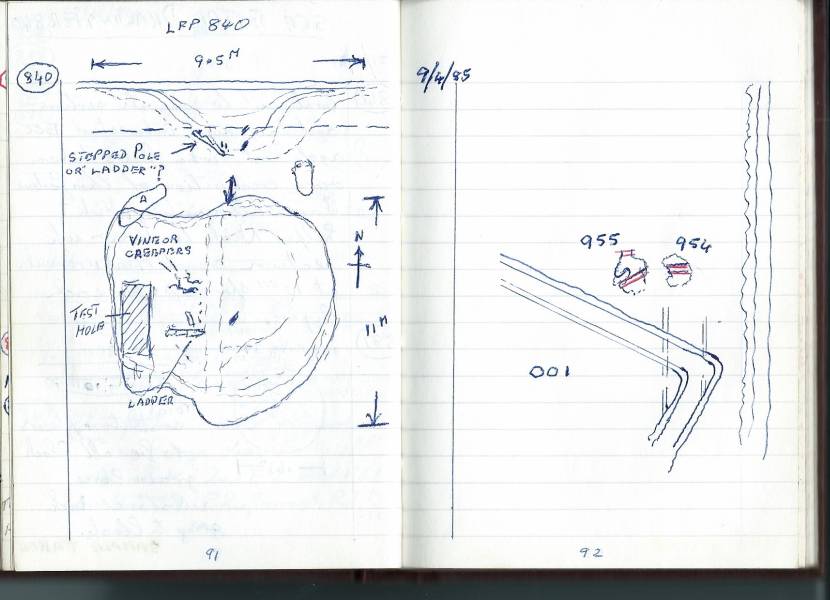 LFP 840
840
9.5 M
STEPPED POLE
OR "LADDER"?
A
N
VINE OR
CREEPERS
TEST
HOLE
11 M
LADDER
91
9/4/85
955
954
001
92